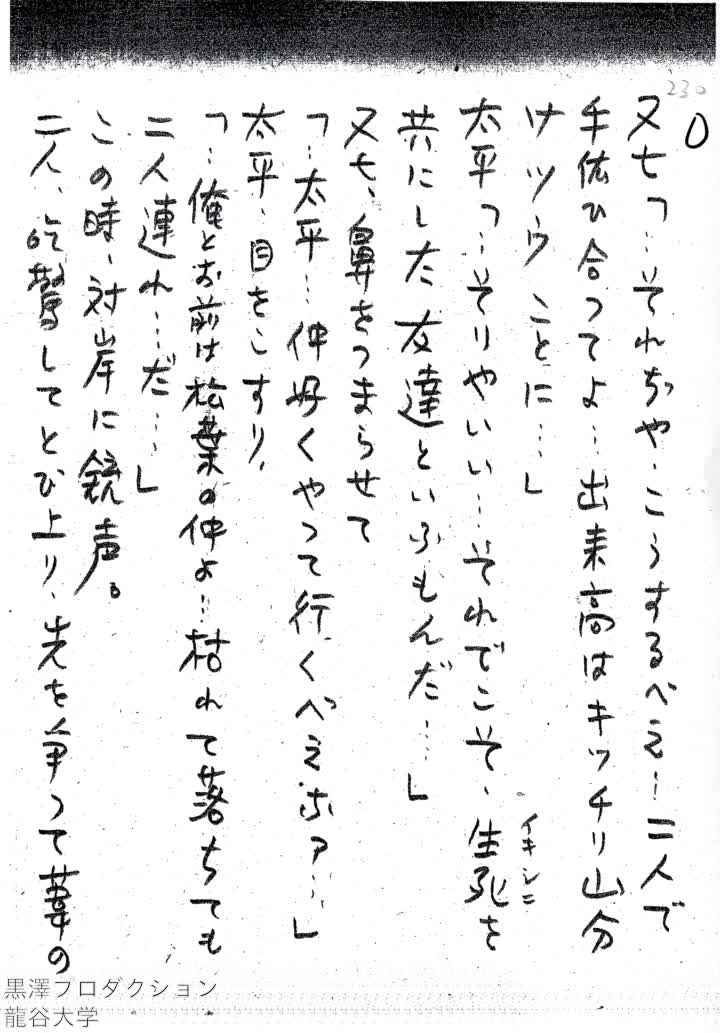 230
又七「…それぢや、こうするべえ…二人で
手伝ひ合つてよ…出来高はキツチリ山分
けツウことに…」
太平「…そりやいい…それでこそ、生死を
イキシニ
共にした友達といふもんだ……」
又七、鼻をつまらせて
「…太平…仲好くやつて行くべえなア…」
太平、目をこすり、
「…俺とお前は松葉の仲よ…枯れて落ちても
二人連れ…だ…」
この時、対岸に銃声。
二人、吃驚してとび上り、先を争つて葦の
黒澤プロダクション
龍谷大学